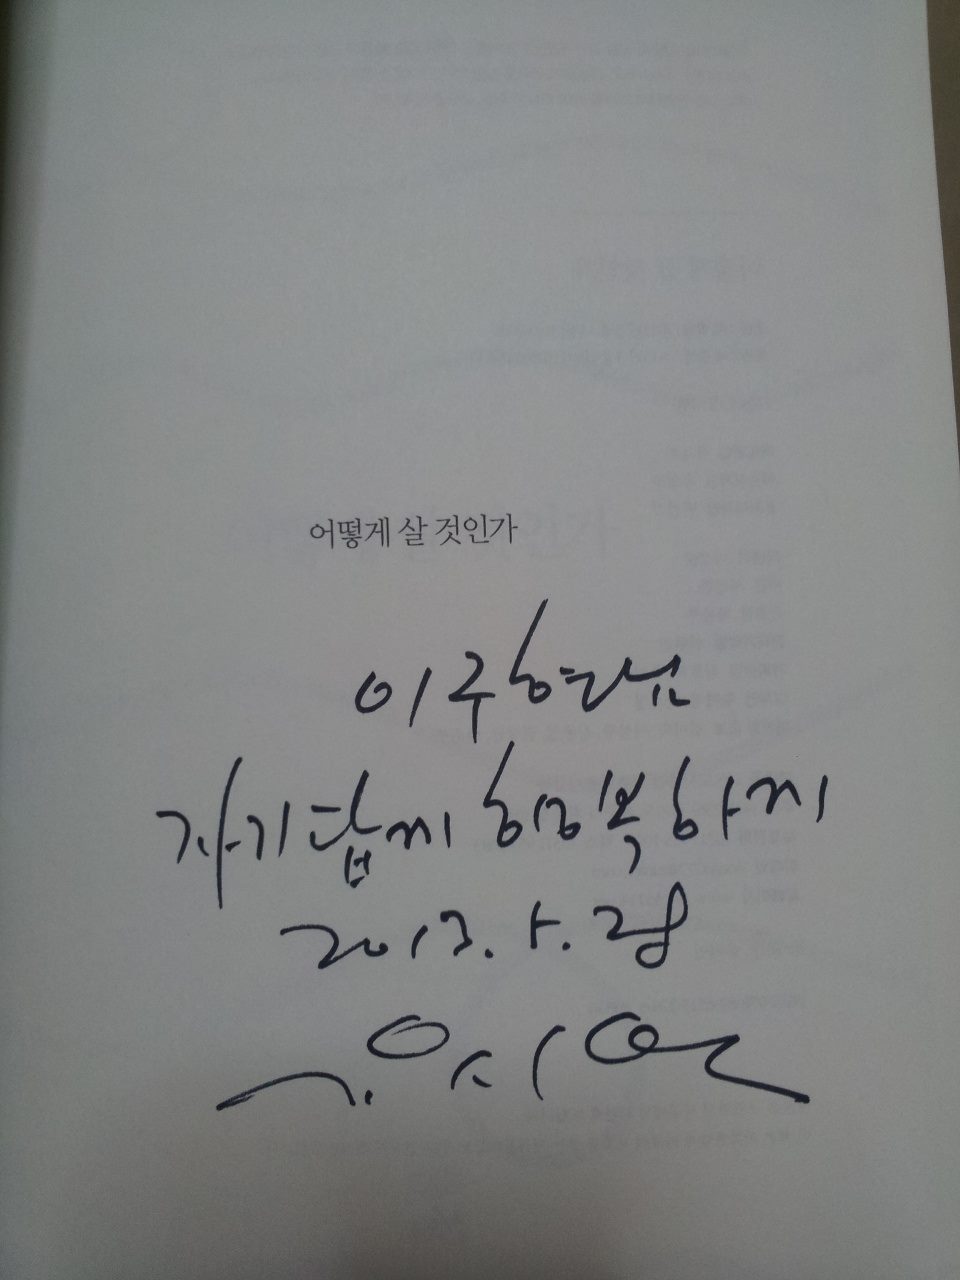 어떻게 살 것인가
이주현님
자기답게 행복하게
2013. 5. 28
유시민